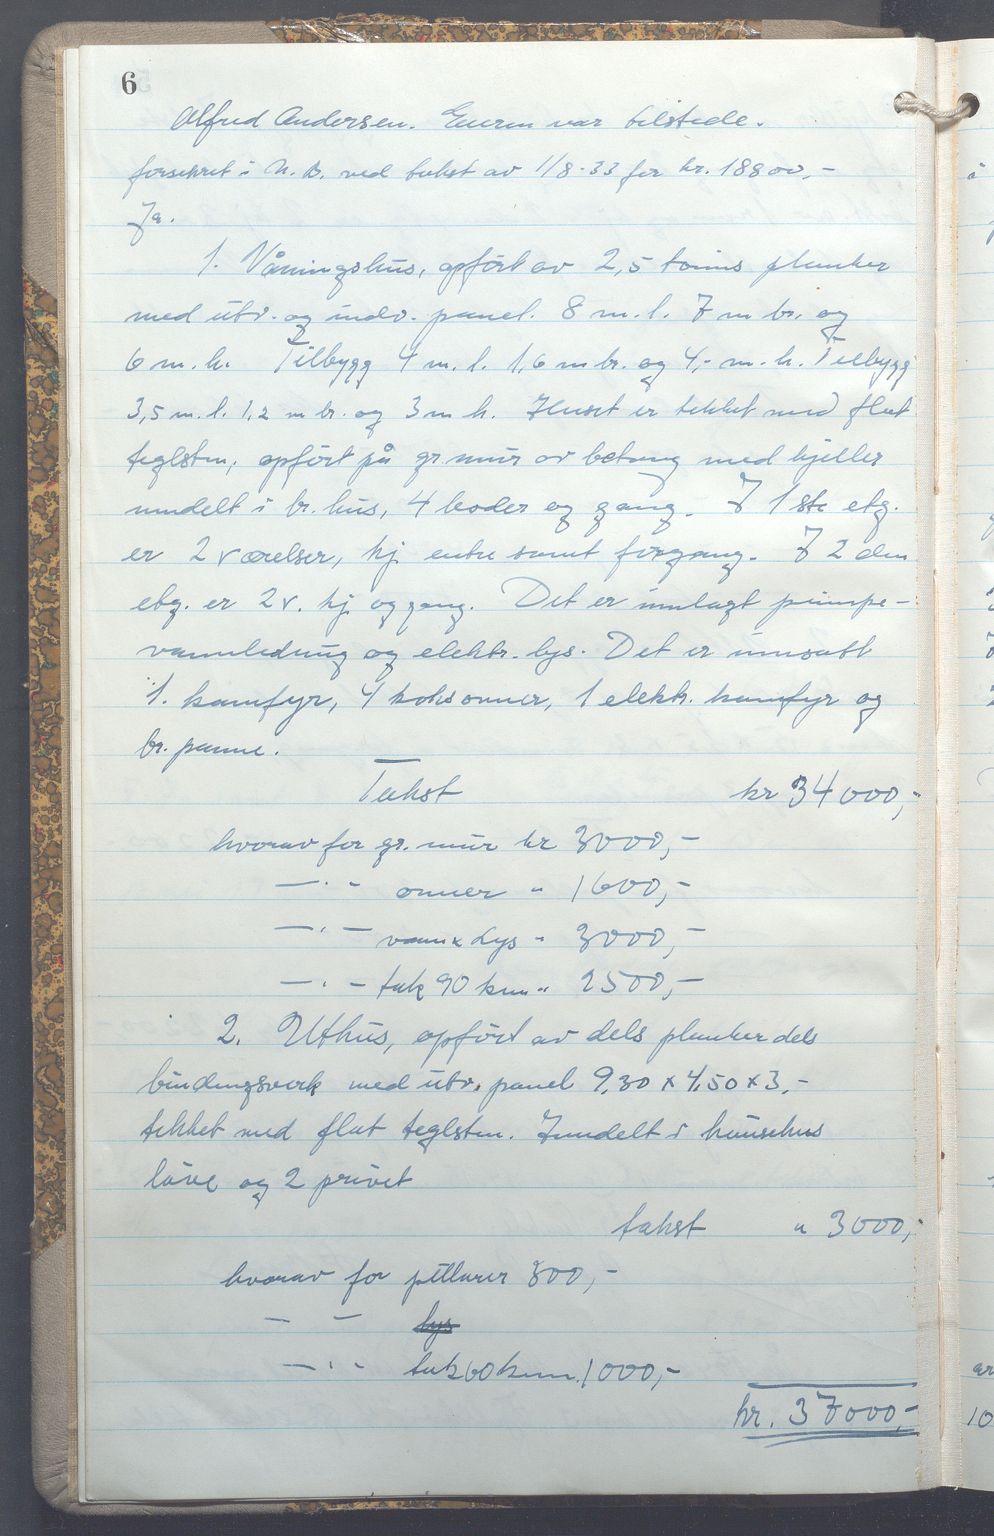 6
Alfred Andersen. Eieren var tilstede.
forsikret i N. B. ved takst av 1/8-33 for kr. 18800,-
Ja.
1. Våningshus, opført av 2,5 toms planker
med utv. og indv. panel. 8 m. l. 7 m br. og
6 m. h. Tilbygg 4 m. l. 1,6 m br. og 4,- m. h. Tilbygg
3,5 m. l. 1,2 m br. og 3 m h. Huset er tekket med flat
teglsten, opført på gr. mur av betong med kjeller
inndelt i br. hus, 4 boder og gang. I 1ste etg.
er 2 værelser, kj. entre samt forgang. I 2den
etg. er 2 v. kj. og gang. Det er innlagt pumpe-
vannledning og elektr. lys. Det er innsatt
1. komfyr, 4 koksovner, 1 elektr. komfyr og
br. panne.
Takst kr 34000,-
hvorav for gr. mur kr 3000,-
—"- ovner " 1600,-
—"— vann & Lys " 3000,-
—"- tak 90 kvm " 2500,-
2. Uthus, opført av dels planker dels
bindingsverk med utv. panel 9,30 x 4,50 x 3,-
tekket med flat teglsten. Inndelt i hønsehus
låve og 2 privet
takst " 3000,-
hvorav for pillarer 800,-
— — lys
—"- tak 60 kvm. 1000,-
kr. 37000,-